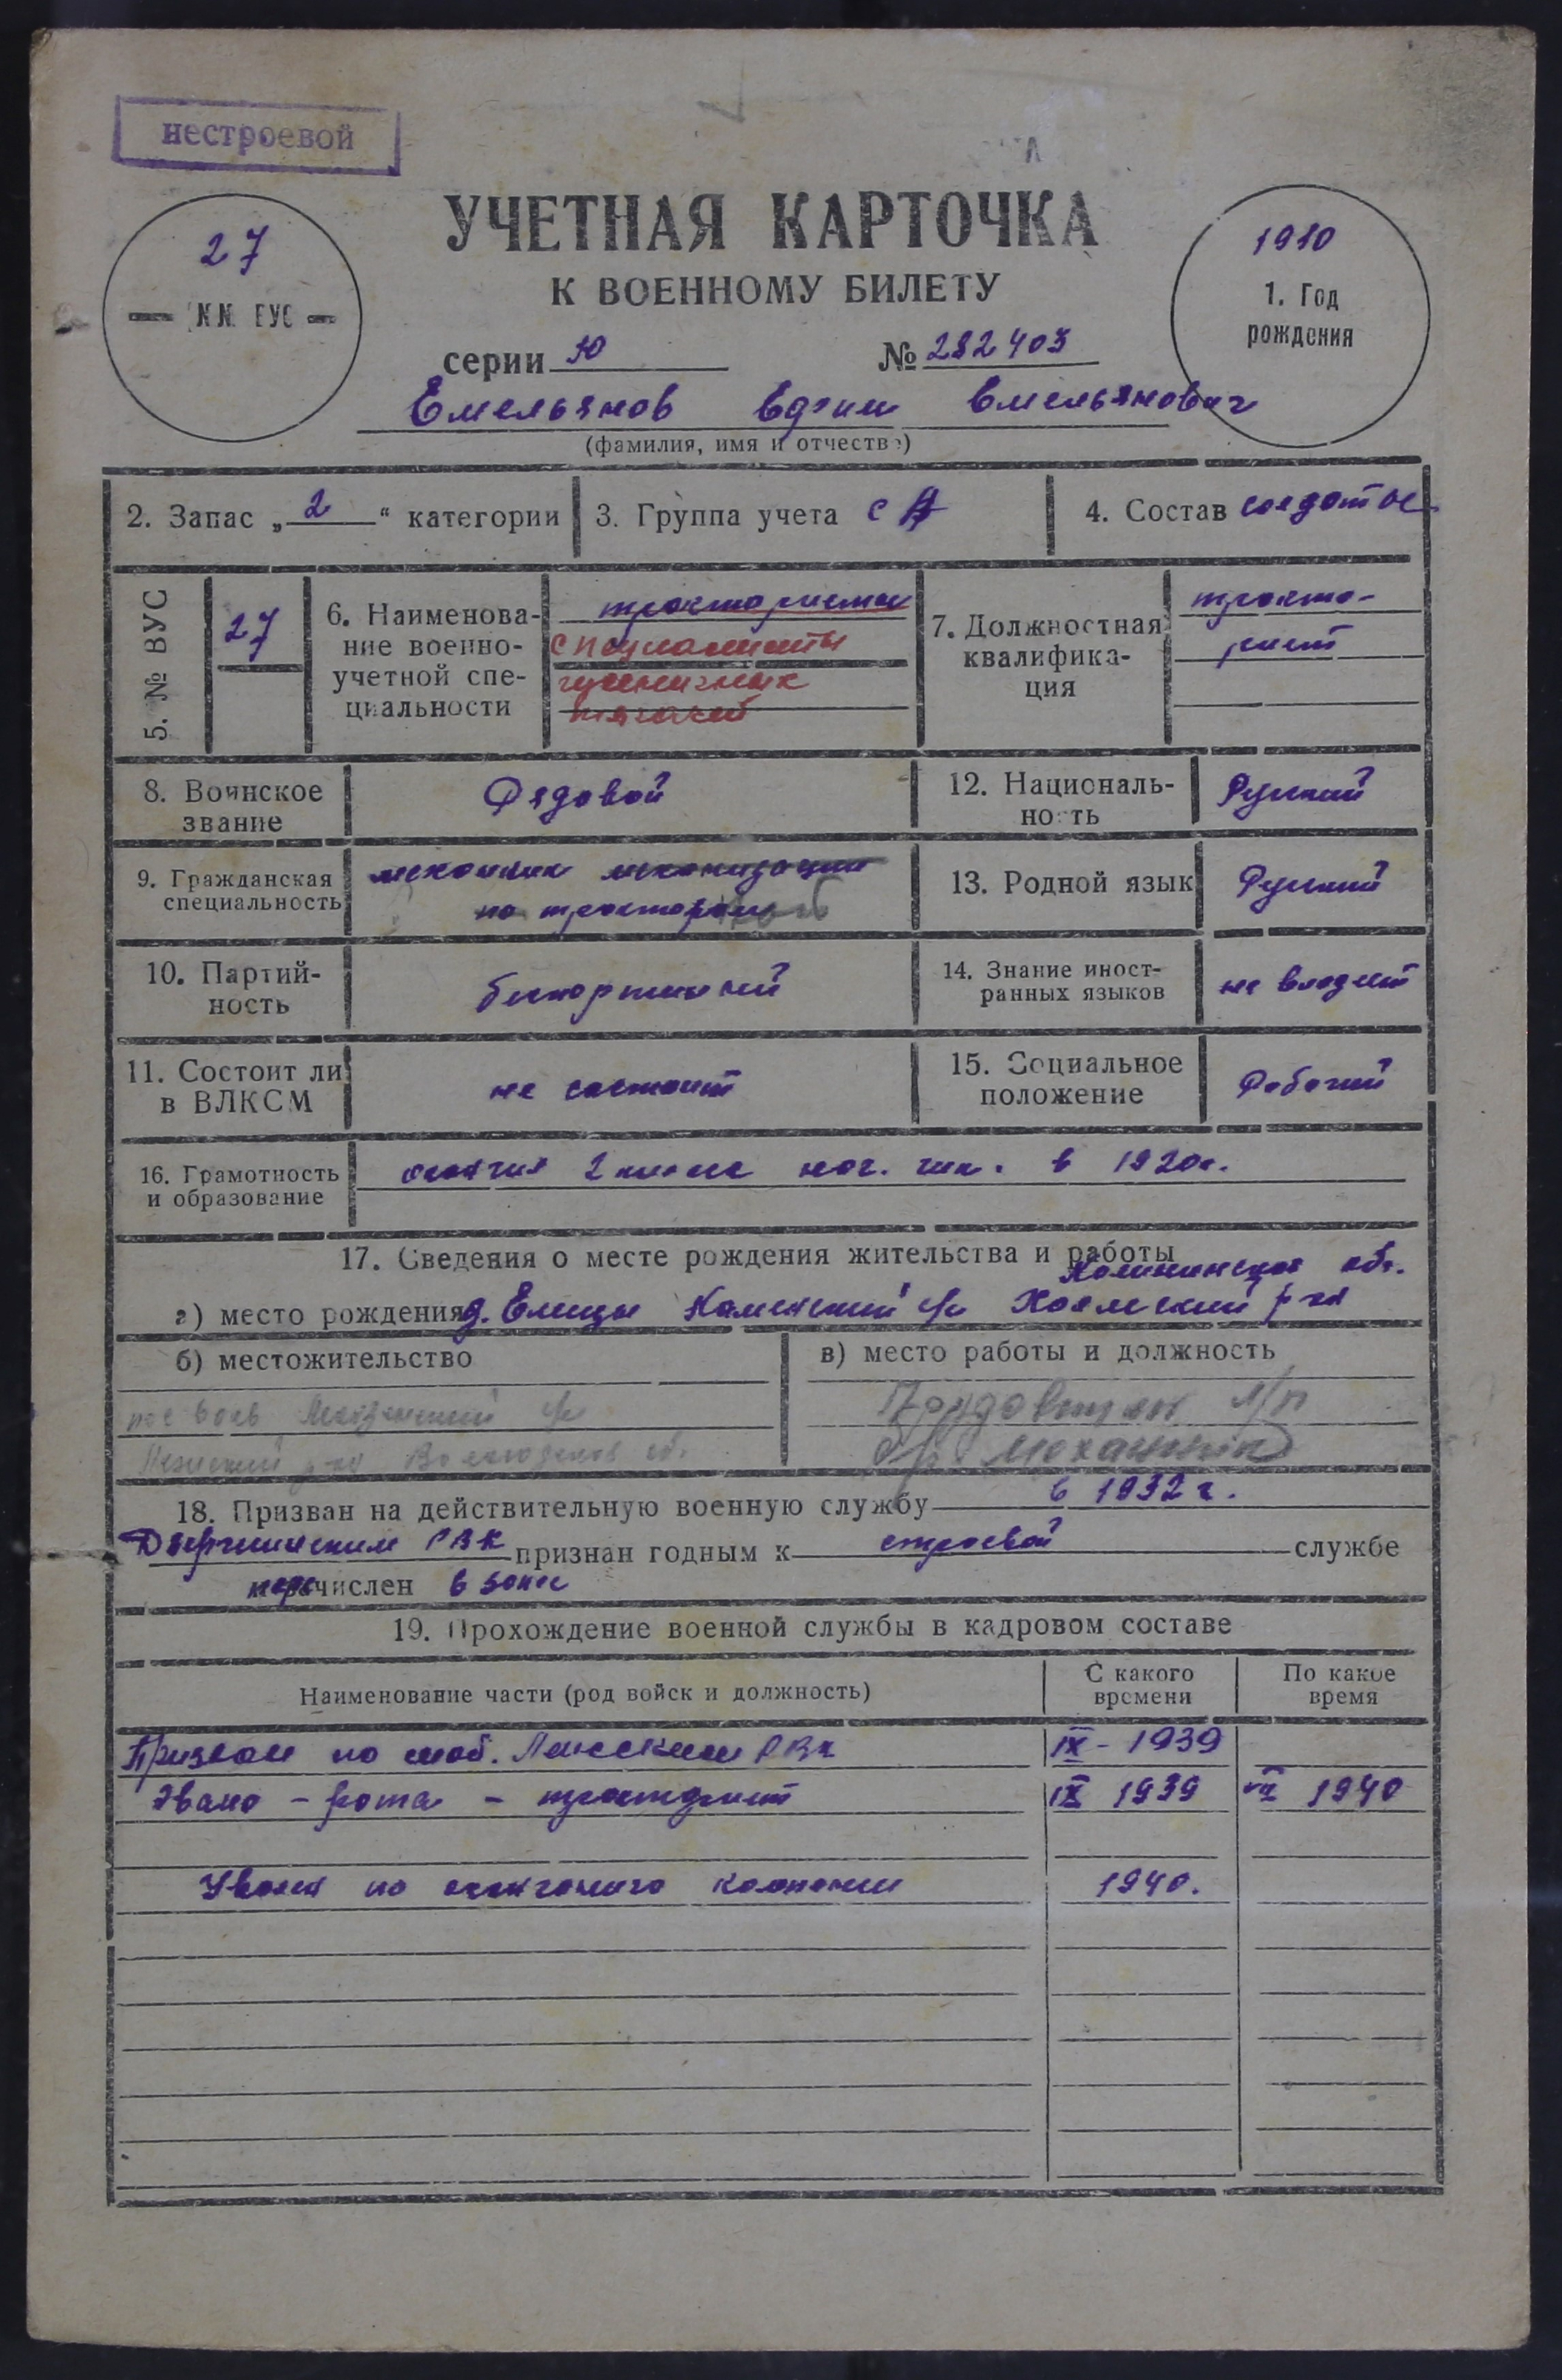 нестроевой
27
№№ ВУС
УЧЕТНАЯ КАРТОЧКА
К ВОЕННОМУ БИЛЕТУ
1910
1. Год
рождения
серии Ю № 282403
Емельянов Емельянович
(фамилия, имя и отчество)
2. Запас „2“ категории
3. Группа учета СА
4. Состав солдаты
5. № ВУС
27
6. Наименова-
ние военно-
учетной спе-
циальности
трактористы
специалисты
гусеничных
тягачей
7. Должностная
квалифика-
ция
тракто-
рист
8. Воинское
звание
Рядовой
12. Националь-
ность
Русский
9. Гражданская
специальность
механик механизации
по тракторам
13. Родной язык
Русский
10. Партий-
ность
беспартийный
14. Знание иност-
ранных языков
не владеет
11. Состоит ли
в ВЛКСМ
не состоит
15. Социальное
положение
Рабочий
16. Грамотность
и образование
окончил 2 класса нач. шк. в 1920г.
17. Сведения о месте рождения жительства и работы
Калининская обл.
а) место рождения д. Елицы Каменский с/с Холмский р-он
б) местожительство
в) место работы и должность
с/с
р-он обл.
Трудовицкий л/п
механик
18. Призван на действительную военную службу в 1932 г.
Дзержинским РВК признан годным к строевой службе
перечислен в запас
19. Прохождение военной службы в кадровом составе
Наименование части (род войск и должность)
С какого
времени
По какое
время
Призван по моб. РВК IX - 1939
рота - тракторист IX 1939 VII 1940
Уволен по окончанию кампании 1940.